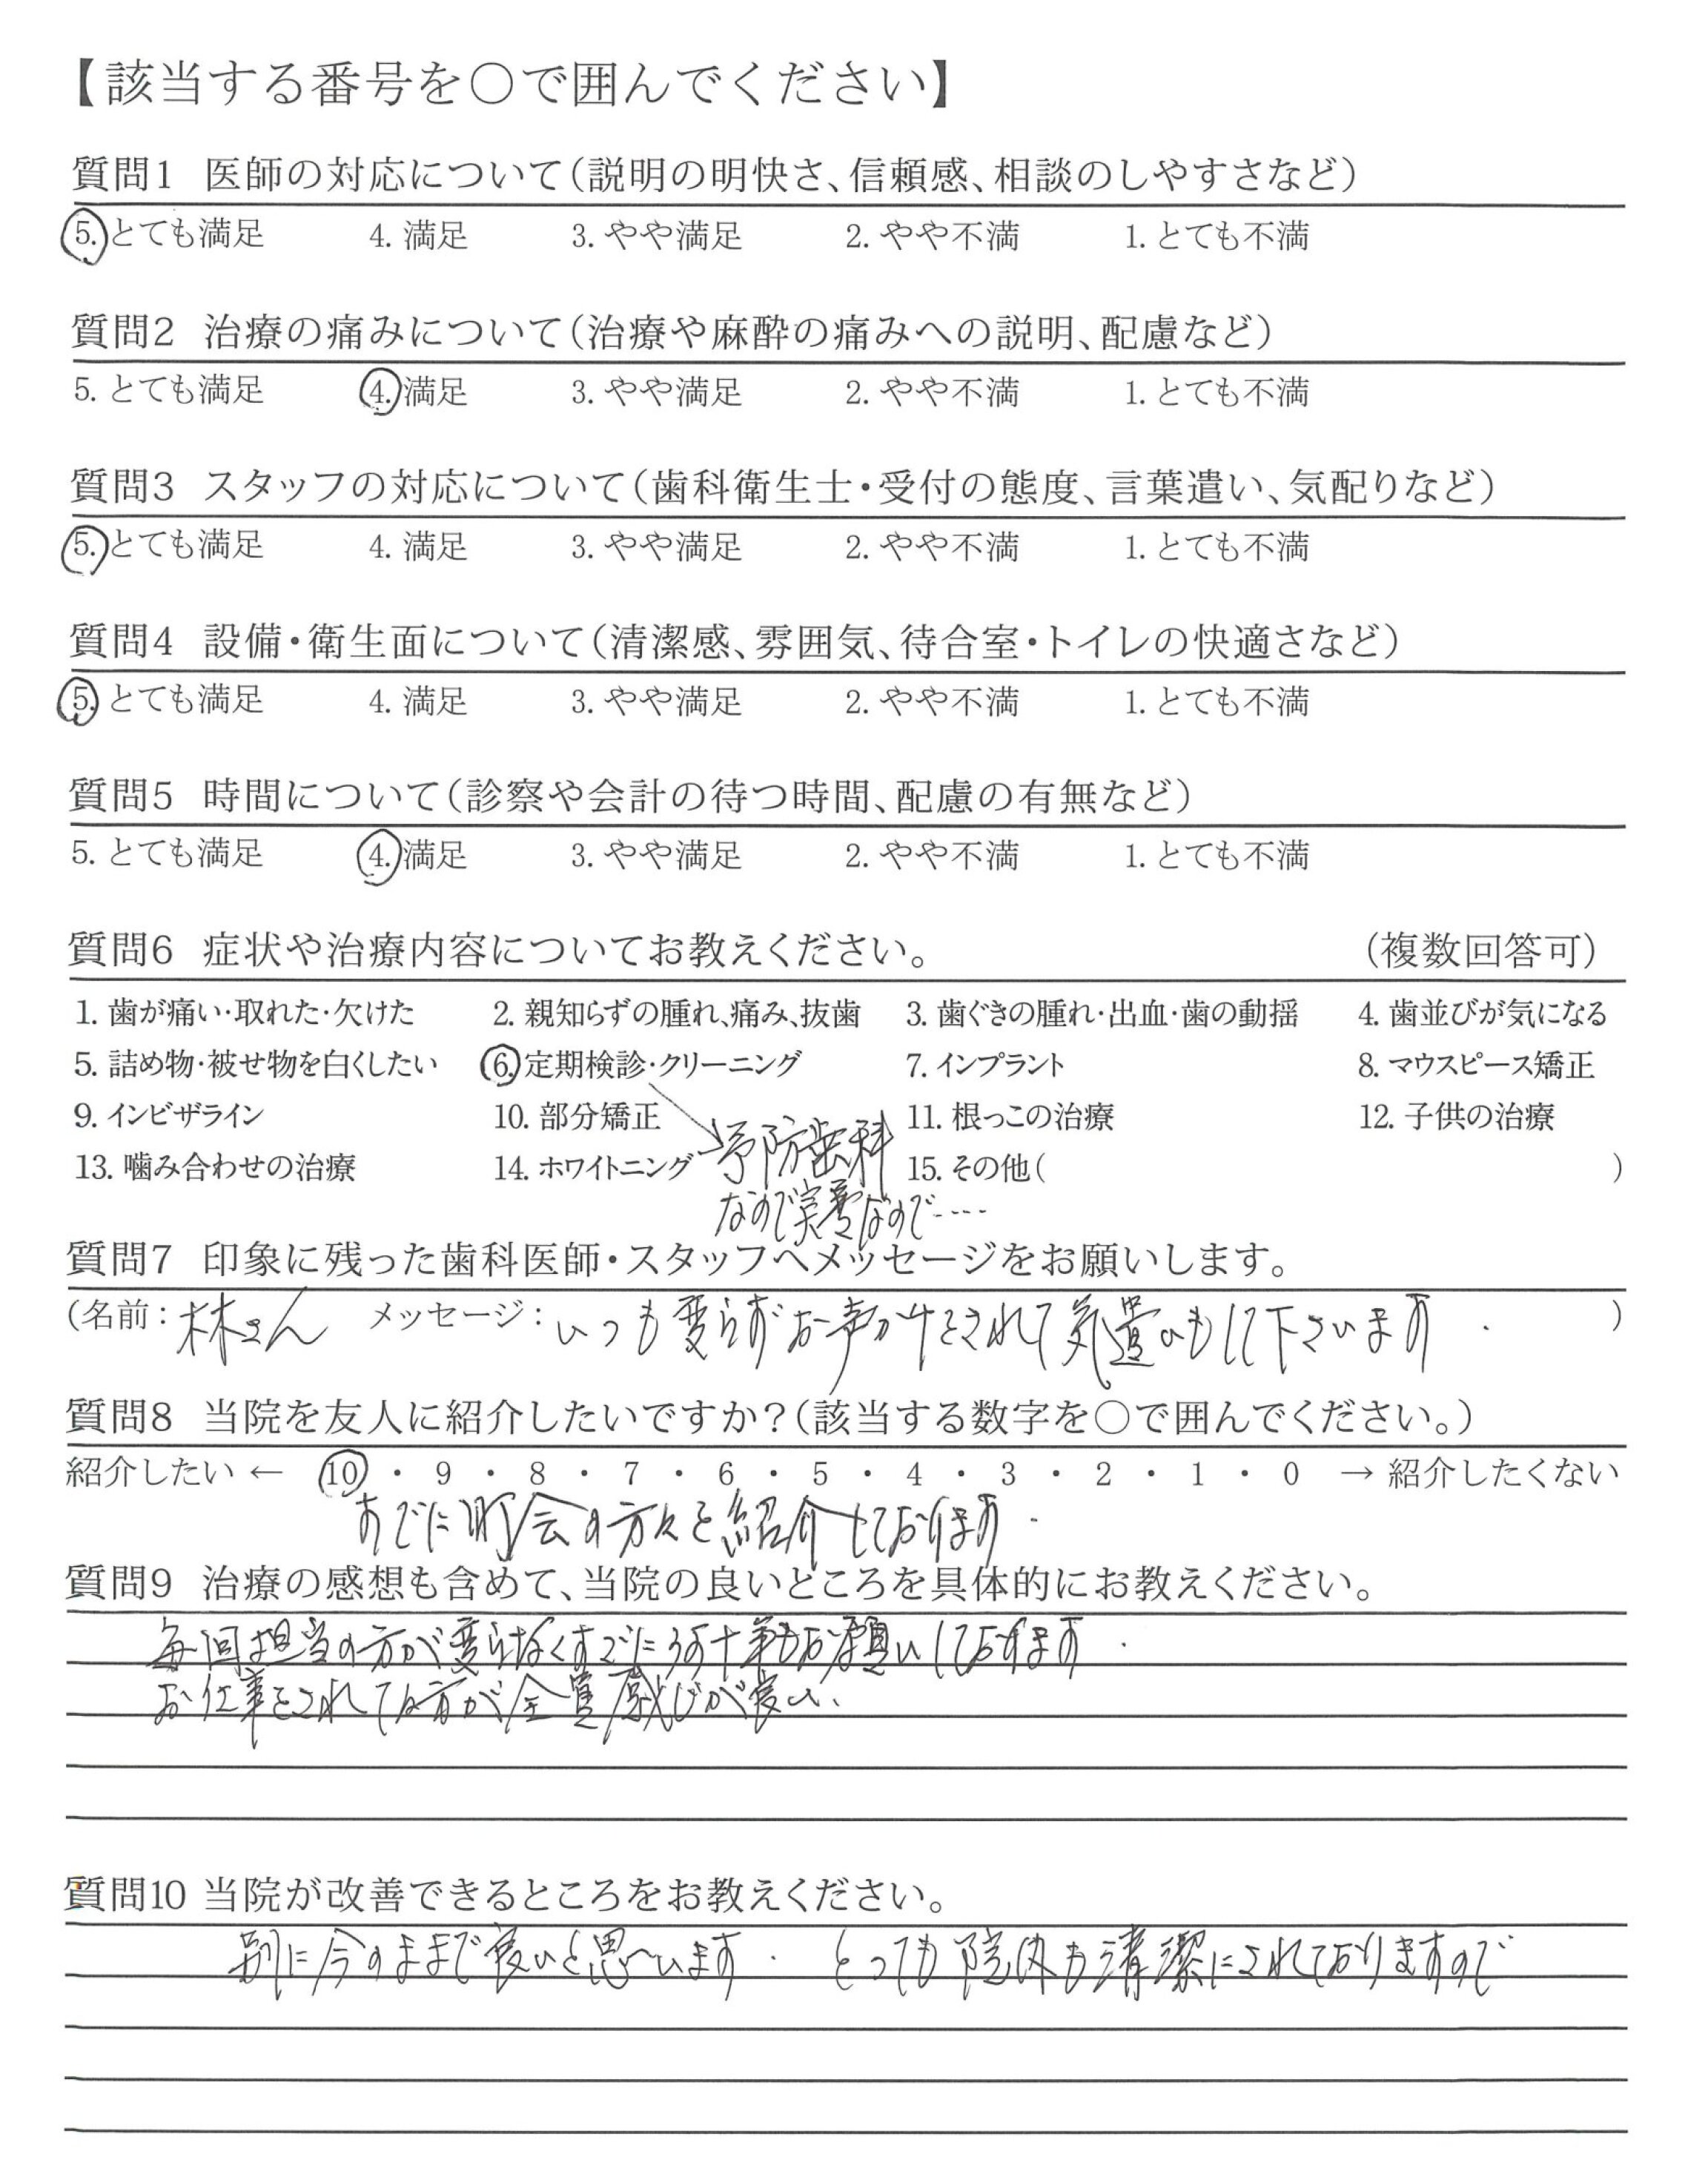 【該当する番号を○で囲んでください】
質問1 医師の対応について(説明の明快さ、信頼感、相談のしやすさなど)
5. とても満足 4. 満足 3. やや満足 2. やや不満 1. とても不満
質問2 治療の痛みについて(治療や麻酔の痛みへの説明、配慮など)
5. とても満足 4. 満足 3. やや満足 2. やや不満 1. とても不満
質問3 スタッフの対応について(歯科衛生士・受付の態度、言葉遣い、気配りなど)
5. とても満足 4. 満足 3. やや満足 2. やや不満 1. とても不満
質問4 設備・衛生面について(清潔感、雰囲気、待合室・トイレの快適さなど)
5. とても満足 4. 満足 3. やや満足 2. やや不満 1. とても不満
質問5 時間について(診察や会計の待つ時間、配慮の有無など)
5. とても満足 4. 満足 3. やや満足 2. やや不満 1. とても不満
質問6 症状や治療内容についてお教えください。 (複数回答可)
1. 歯が痛い・取れた・欠けた 2. 親知らずの腫れ、痛み、抜歯 3. 歯ぐきの腫れ・出血・歯の動揺 4. 歯並びが気になる
5. 詰め物・被せ物を白くしたい 6. 定期検診・クリーニング 7. インプラント 8. マウスピース矯正
9. インビザライン 10. 部分矯正 11. 根っこの治療 12. 子供の治療
予防歯科
13. 噛み合わせの治療 14. ホワイトニング 15. その他( )
なので実費なので····
質問7 印象に残った歯科医師・スタッフへメッセージをお願いします。
(名前: 林さん メッセージ: いつも変らずお声かけをされて気遣いもして下さいます. )
質問8 当院を友人に紹介したいですか?(該当する数字を○で囲んでください。)
紹介したい ← 10 ・ 9 ・ 8 ・ 7 ・ 6 ・ 5 ・ 4 ・ 3 ・ 2 ・ 1 ・ 0 → 紹介したくない
すでに町会の方々を紹介しております.
質問9 治療の感想も含めて、当院の良いところを具体的にお教えください。
毎回担当の方が変らなくすでに お願いしております.
お仕事をされてる方が全員感じが良い.
質問10 当院が改善できるところをお教えください。
別に今のままで良いと思います. とっても院内も清潔にされておりますので